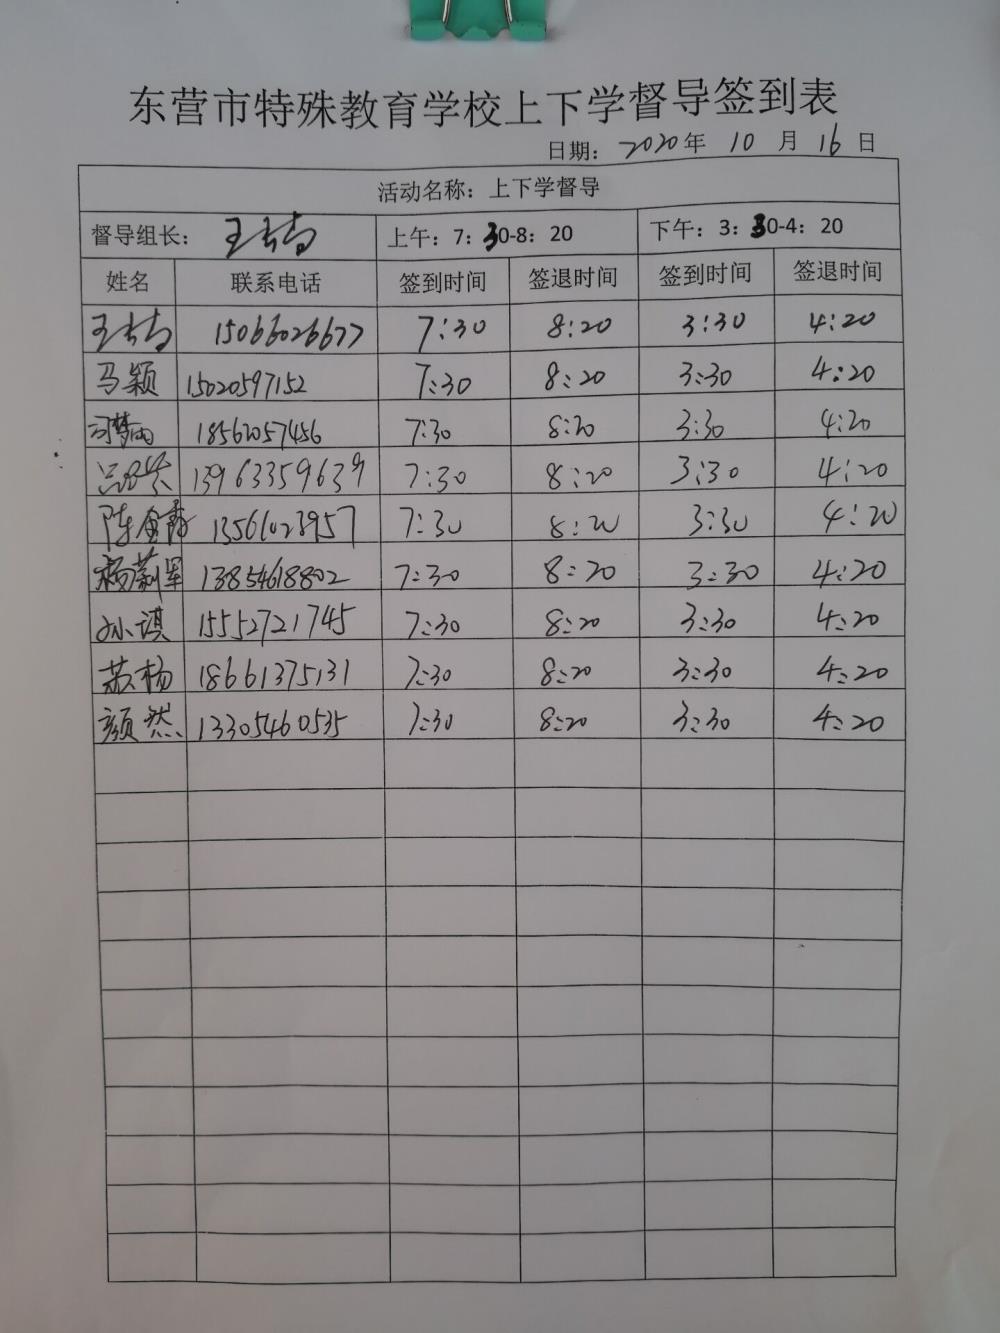 东营市特殊教育学校上下学督导签到表
日期：2020年 10 月 16 日
活动名称：上下学督导
督导组长： 上午：7：30-8：20 下午：3：30-4：20
姓名 联系电话 签到时间 签退时间 签到时间 签退时间
15066026677 7:30 8:20 3:30 4:20
马颖 15020597152 7:30 8:20 3:30 4:20
18562057456 7:30 8:20 3:30 4:20
13963359639 7:30 8:20 3:30 4:20
陈金香 13561023957 7:30 8:20 3:30 4:20
杨莉军 13854618802 7:30 8:20 3:30 4:20
孙谋 15552721745 7:30 8:20 3:30 4:20
苏杨 18661375131 7:30 8:20 3:30 4:20
颜然 13305460535 7:30 8:20 3:30 4:20